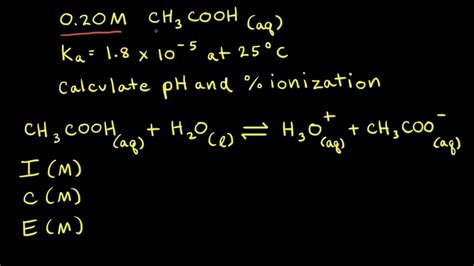 0.20 M CH₃COOH (aq)
Ka = 1.8 x 10⁻⁵ at 25°C
Calculate pH and % ionization
CH₃COOH (aq) + H₂O (l) ⇌ H₃O⁺ (aq) + CH₃COO⁻ (aq)
I (M)
C (M)
E (M)